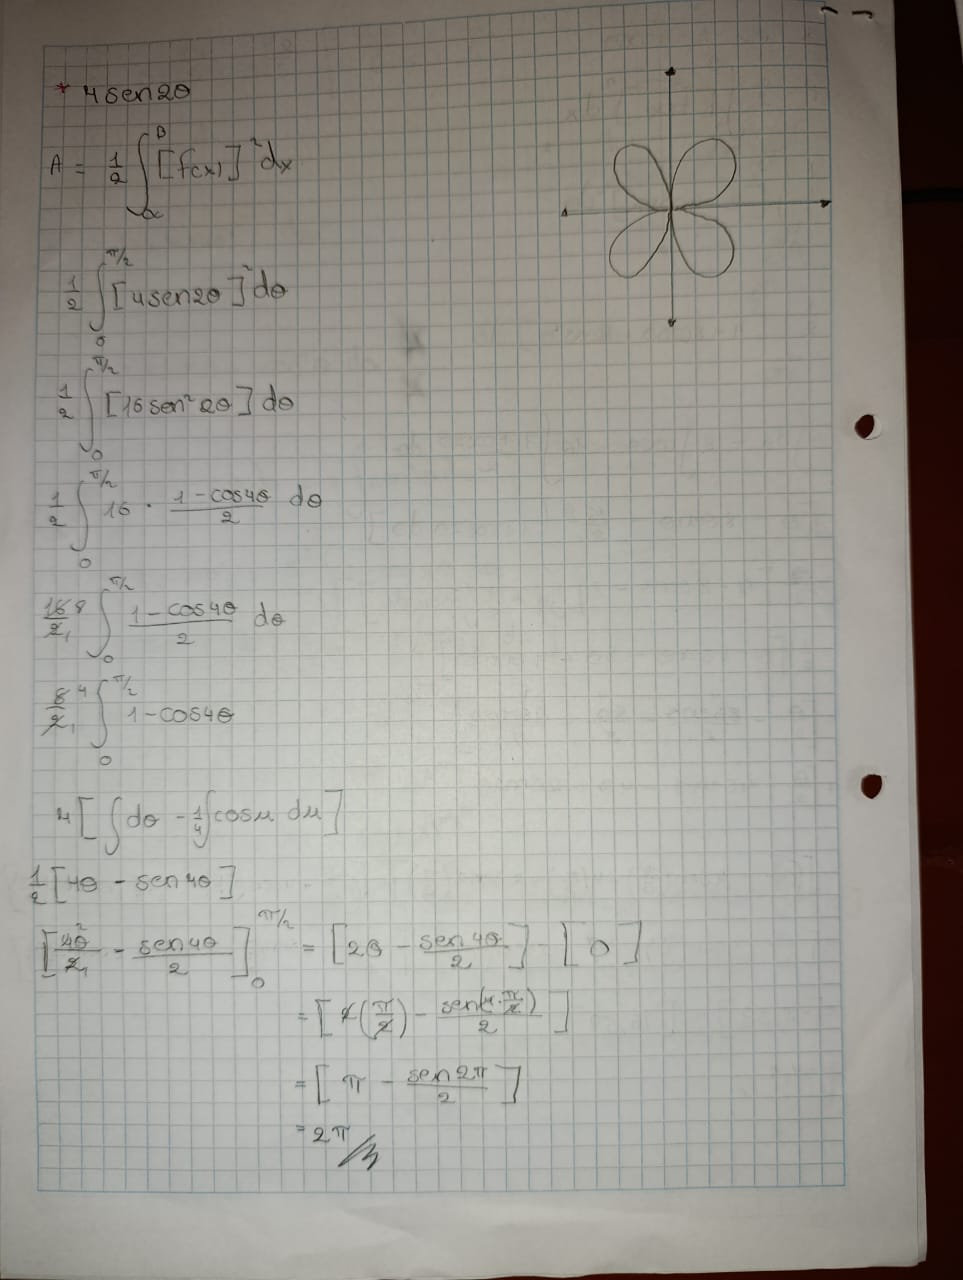 * 4sen2θ
A = 1/2 ∫_α^B [f(x)]² dx
1/2 ∫_0^{π/2} [4sen2θ]² dθ
1/2 ∫_0^{π/2} [16sen² 2θ] dθ
1/2 ∫_0^{π/2} 16 · (1-cos4θ)/2 dθ
16/2 8/1 ∫_0^{π/2} (1-cos4θ)/2 dθ
8/2 4/1 ∫_0^{π/2} 1-cos4θ
4[∫dθ - 1/4 ∫cosu du]
1/2 [4θ - sen4θ]
[4θ/2 2/1 - sen4θ/2]_0^{π/2} = [2θ - sen4θ/2] - [0]
= [2(π/2) - sen(4·π/2)/2]
= [π - sen2π/2]
= 2π //